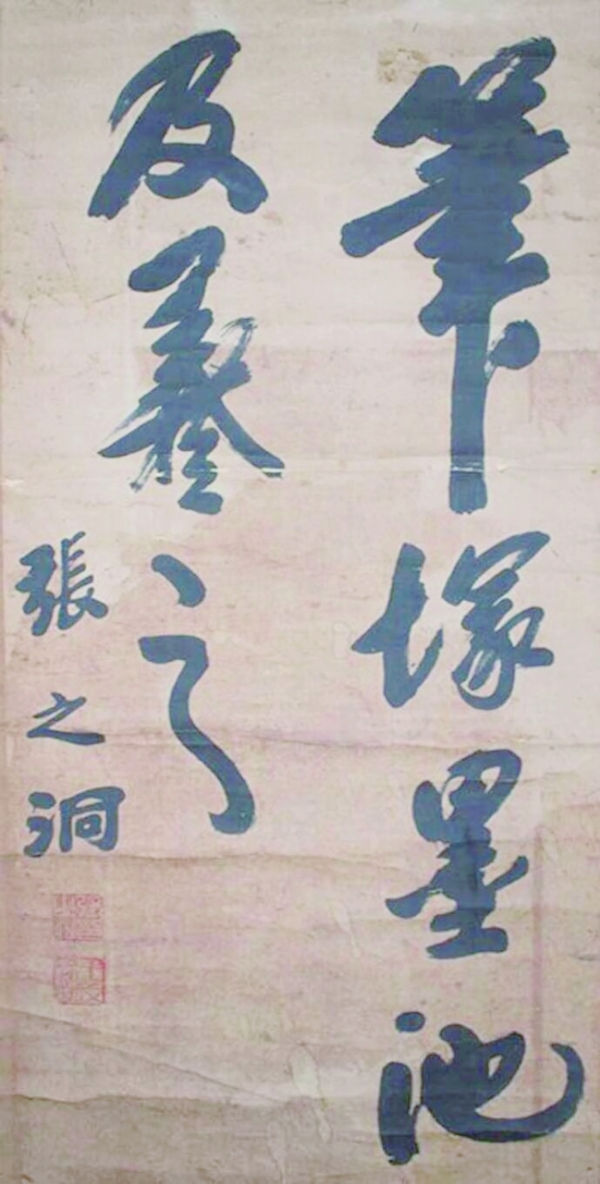 筆塚墨池
及羲之
張之洞